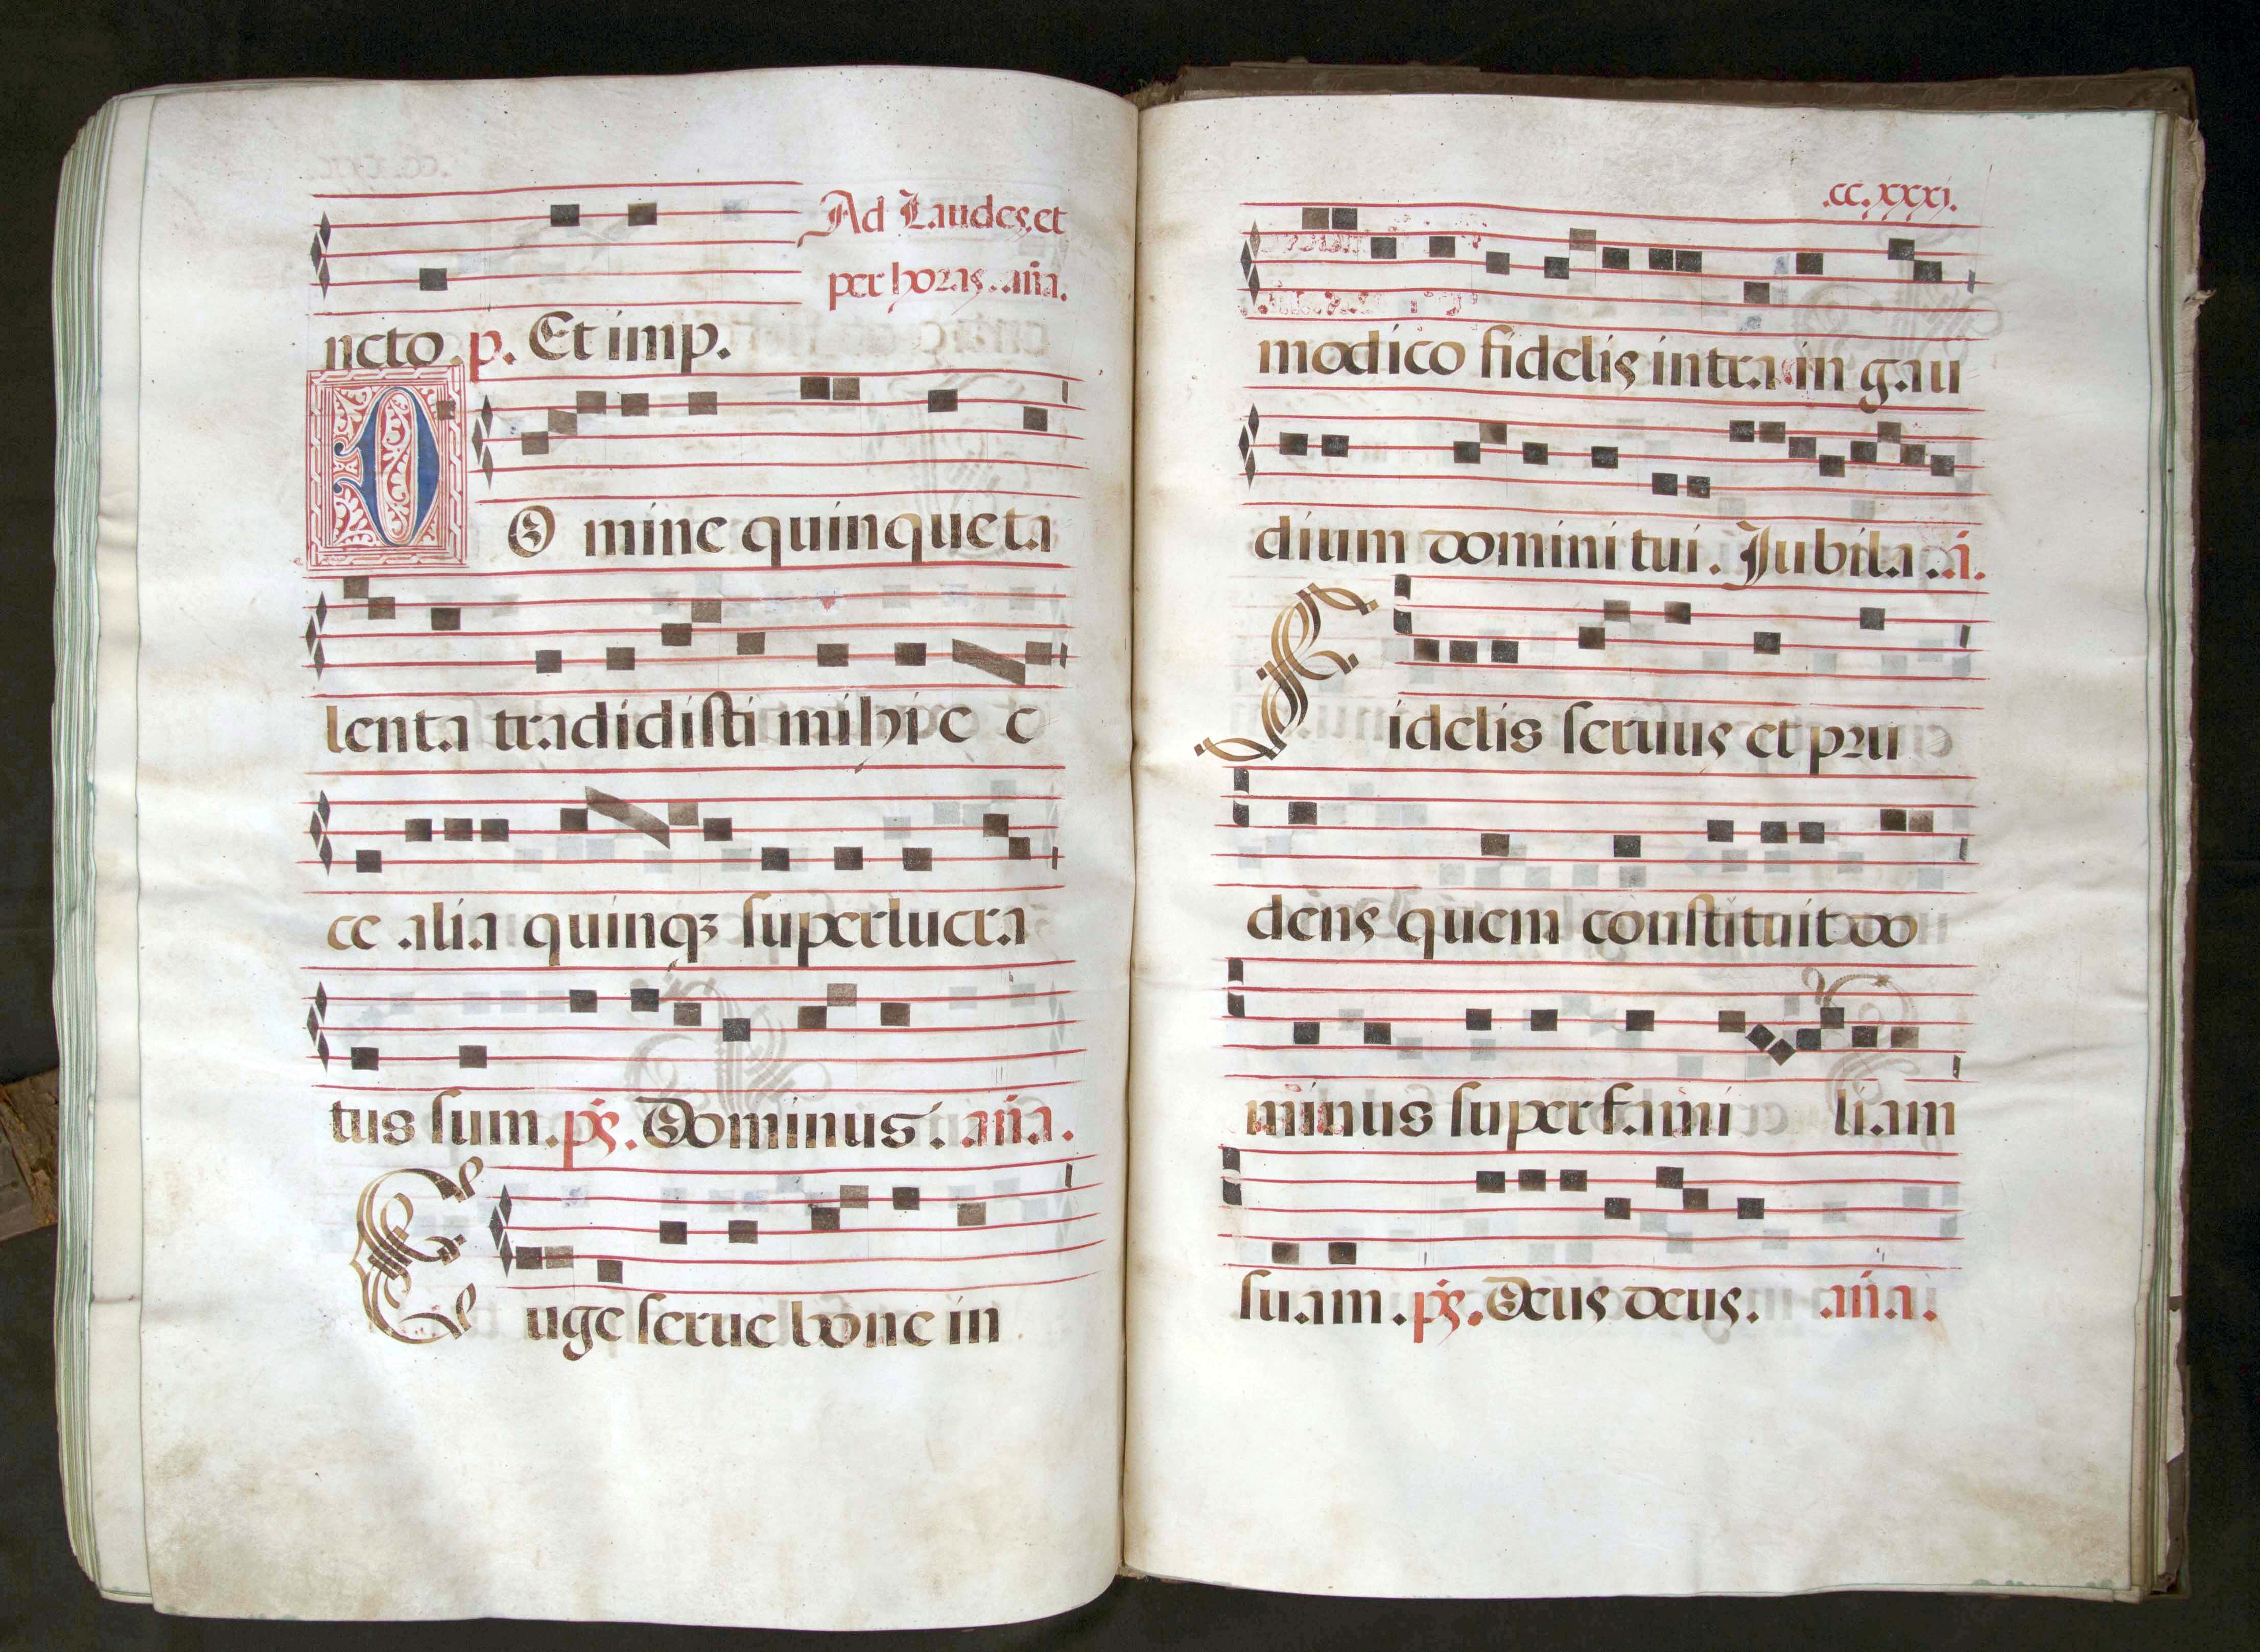 Ad Laudes.et
per horas.aña.
ncto.p. Et imp.
DO mine quinque ta
lenta tradidisti mihi e c
ce alia quinqꝫ superlucra
tus sum.ps.Dominus. aña.
Euge serue bone in
.cc.xxxj.
modico fidelis intra in gau
dium domini tui. Jubila.añ.
Fidelis seruus et pru
dens quem constituit do
minus super fami liam
suam.ps.Deus deus. aña.